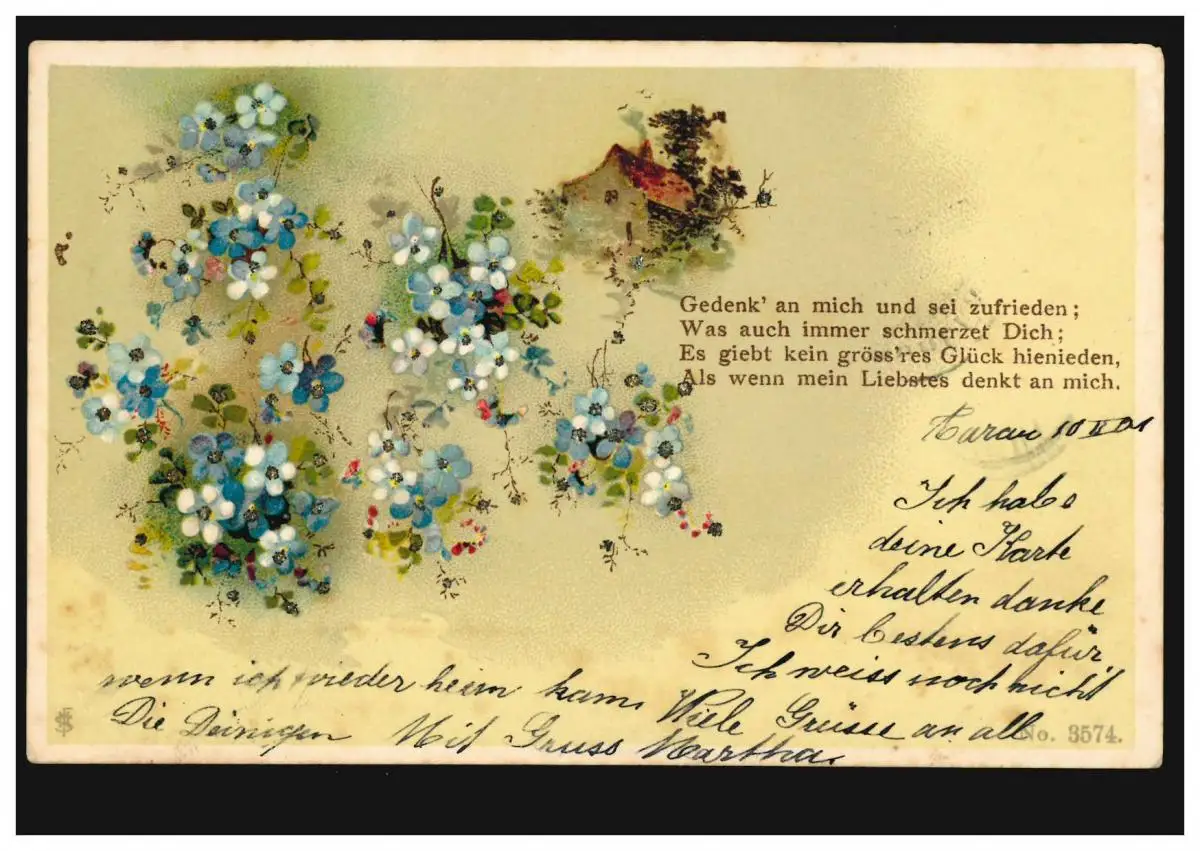 Gedenk' an mich und sei zufrieden;
Was auch immer schmerzet Dich;
Es giebt kein gröss'res Glück hienieden,
Als wenn mein Liebstes denkt an mich.
10 II 01
Ich habe
deine Karte
erhalten danke
Dir bestens dafür,
Ich weiss noch nicht
wenn ich wieder heim kam. Viele Grüsse an all
Die Deinigen Mit Gruss Martha.
No. 3574.